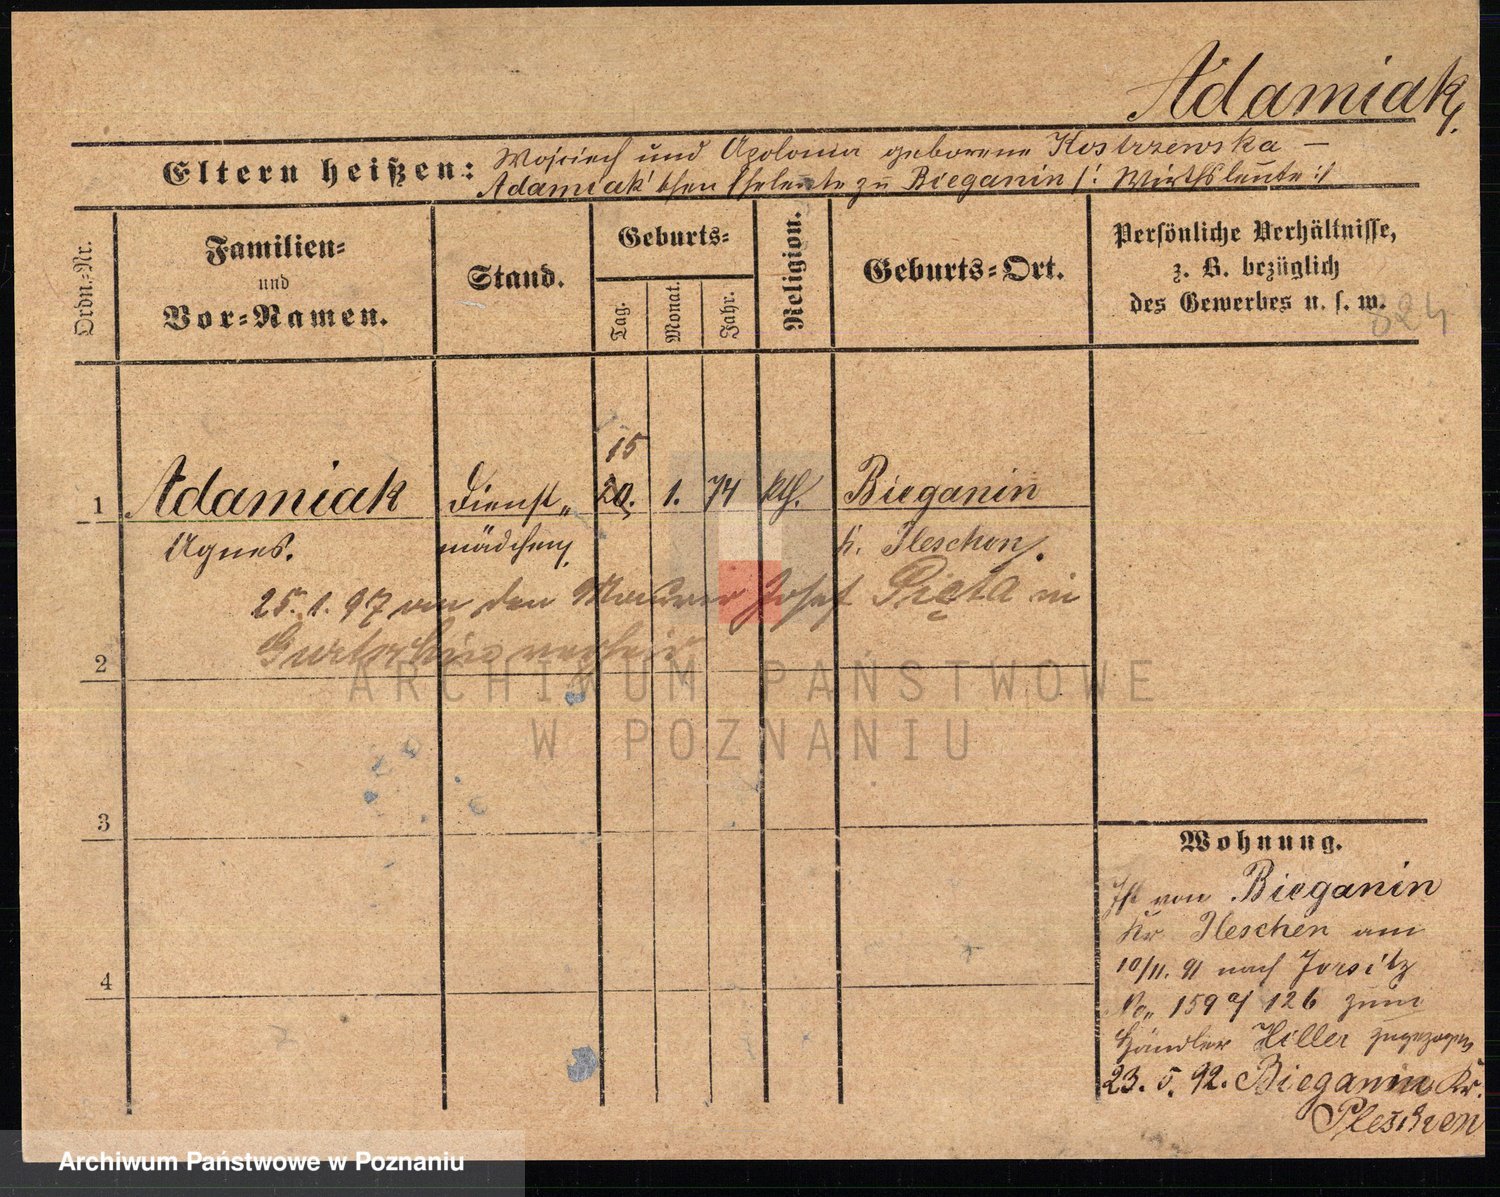 Adamiak.
Eltern heißen: Wojciech und Apolonia geborene Kostrzewska –
Adamiak'schen Eheleute zu Bieganin /: Wirthsleute :/
Ordn.-Nr.
Familien-
und
Vor-Namen.
Stand.
Geburts-
Tag.
Monat.
Jahr.
Religion.
Geburts-Ort.
Persönliche Verhältnisse,
z. B. bezüglich
des Gewerbes u. s. w.
824
15
1 Adamiak Dienst- 20. 1. 74 kth. Bieganin
Agnes. mädchen K. Pleschen.
25.1.97 an den Maurer Josef Pięta in
verheir
2
3
4
Wohnung.
Ist von Bieganin
Kr. Pleschen am
10/11. 91 nach Jersitz
No. 159 a/ 126 zum
Händler Hiller zugezogen
23. 5. 92. Bieganin Kr.
Pleschen
ARCHIWUM PAŃSTWOWE
W POZNANIU
Archiwum Państwowe w Poznaniu